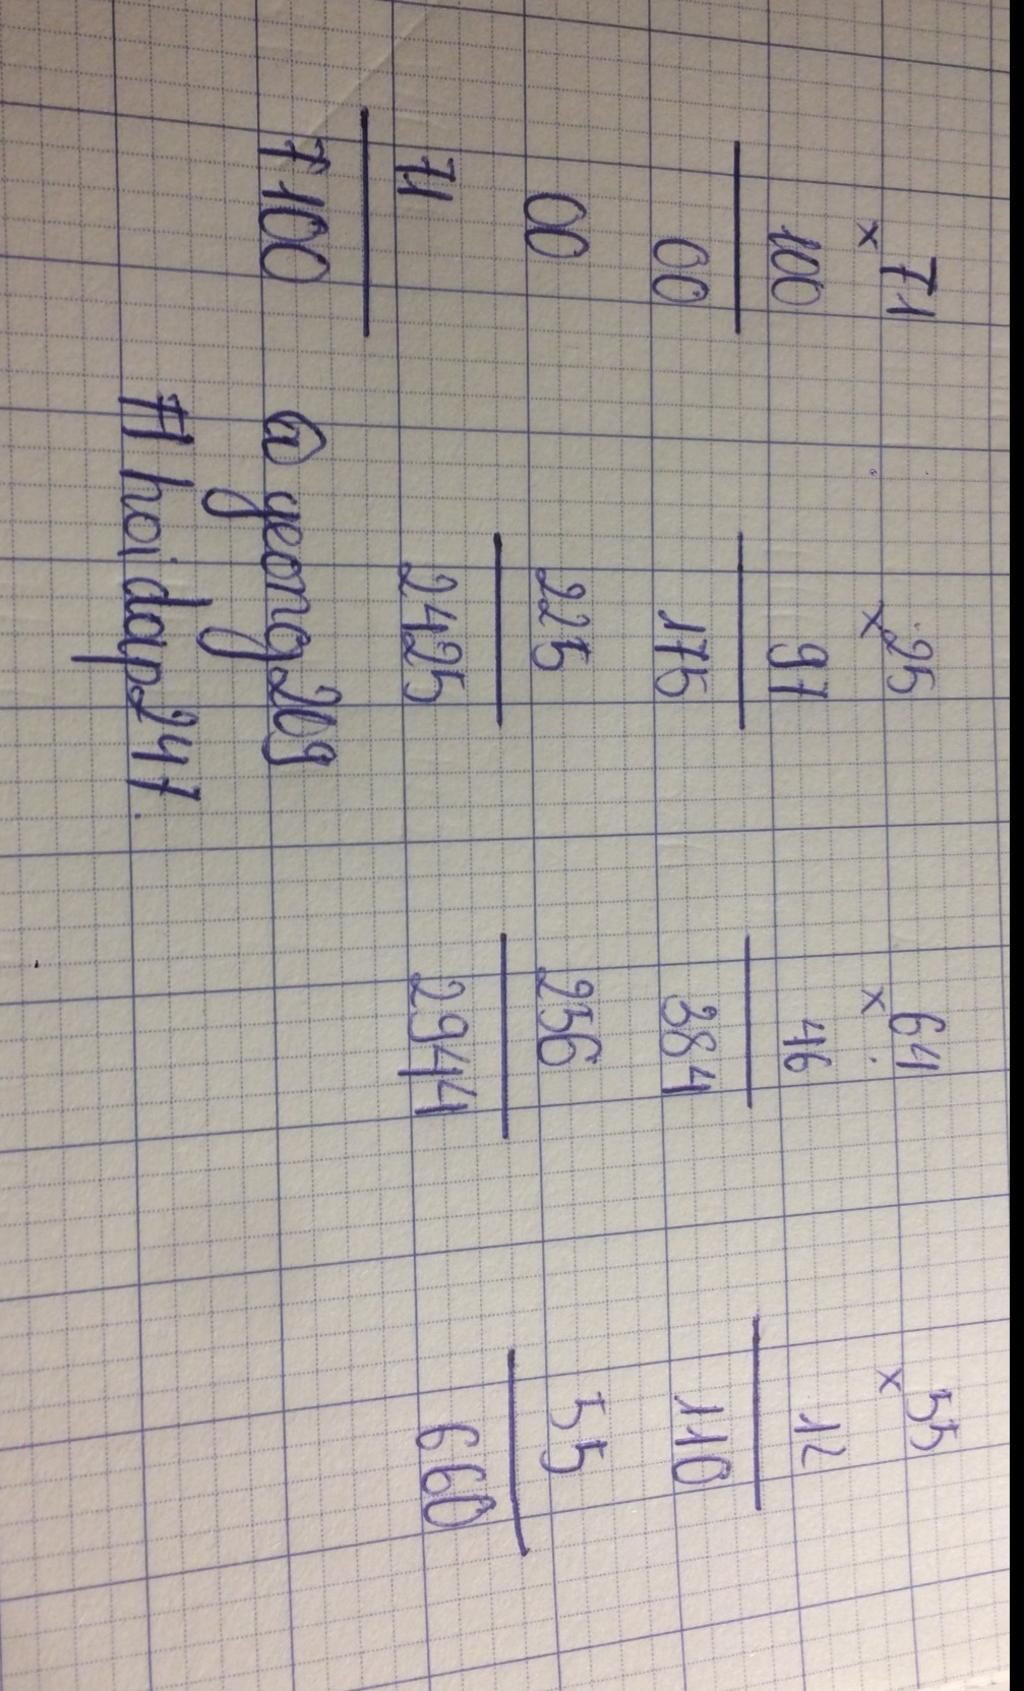 × 71
100
00
00
71
7100
× 25
97
175
225
2425
× 64
46
384
256
2944
× 55
12
110
55
660
@ yeong209
# hoidap247.